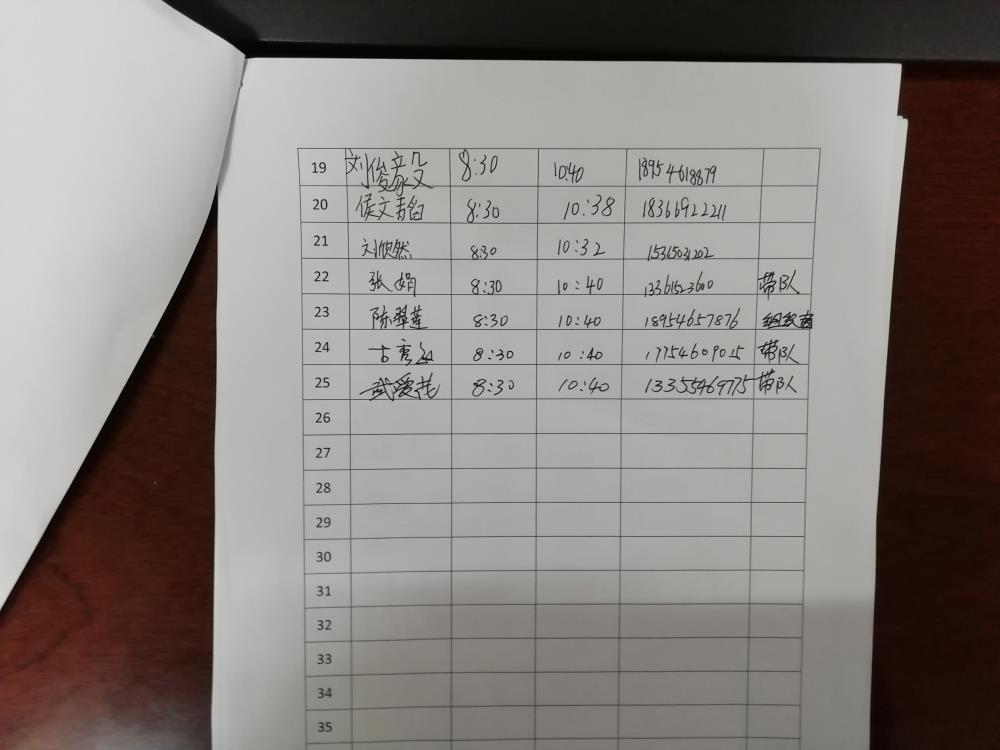 19 刘俊毅 8:30 10:40 18954618879
20 侯文 8:30 10:38 18366922211
21 刘欣然 8:30 10:32 15315031202
22 张娟 8:30 10:40 13361523600 带队
23 陈翠莲 8:30 10:40 18954657876 组织者
24 古 8:30 10:40 17754609015 带队
25 武爱花 8:30 10:40 13355469775 带队
26
27
28
29
30
31
32
33
34
35